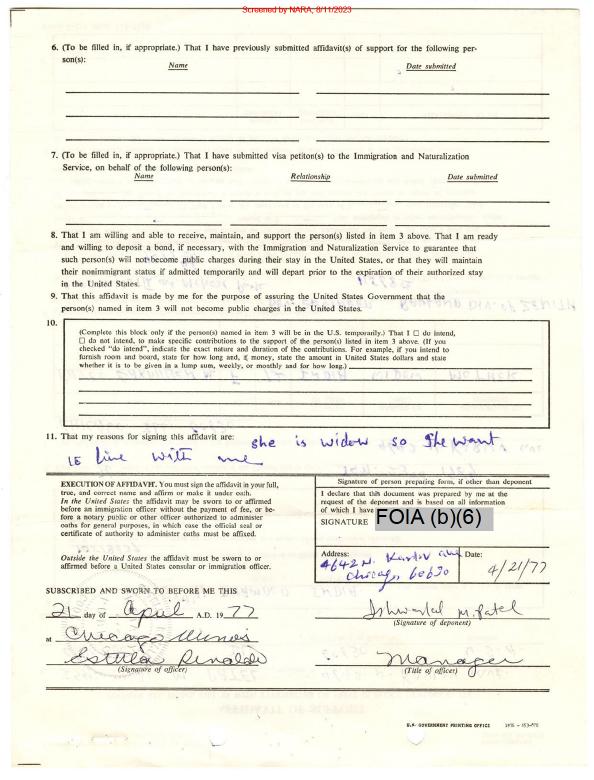 Screened by NARA, 8/11/2023
6. (To be filled in, if appropriate.) That I have previously submitted affidavit(s) of support for the following per-
son(s):
Name Date submitted
7. (To be filled in, if appropriate.) That I have submitted visa petiton(s) to the Immigration and Naturalization
Service, on behalf of the following person(s):
Name Relationship Date submitted
8. That I am willing and able to receive, maintain, and support the person(s) listed in item 3 above. That I am ready
and willing to deposit a bond, if necessary, with the Immigration and Naturalization Service to guarantee that
such person(s) will not become public charges during their stay in the United States, or that they will maintain
their nonimmigrant status if admitted temporarily and will depart prior to the expiration of their authorized stay
in the United States.
9. That this affidavit is made by me for the purpose of assuring the United States Government that the
person(s) named in item 3 will not become public charges in the United States.
10.
(Complete this block only if the person(s) named in item 3 will be in the U.S. temporarily.) That I ☐ do intend,
☐ do not intend, to make specific contributions to the support of the person(s) listed in item 3 above. (If you
checked "do intend", indicate the exact nature and duration of the contributions. For example, if you intend to
furnish room and board, state for how long and, if money, state the amount in United States dollars and state
whether it is to be given in a lump sum, weekly, or monthly and for how long.)
11. That my reasons for signing this affidavit are: she is widow so she want
to live with me
EXECUTION OF AFFIDAVIT. You must sign the affidavit in your full,
true, and correct name and affirm or make it under oath.
In the United States the affidavit may be sworn to or affirmed
before an immigration officer without the payment of fee, or be-
fore a notary public or other officer authorized to administer
oaths for general purposes, in which case the official seal or
certificate of authority to administer oaths must be affixed.
Outside the United States the affidavit must be sworn to or
affirmed before a United States consular or immigration officer.
Signature of person preparing form, if other than deponent
I declare that this document was prepared by me at the
request of the deponent and is based on all information
of which I have
SIGNATURE FOIA (b)(6)
Address: 4642 N. Karlov ave
Chicago, 60630
Date: 4/21/77
SUBSCRIBED AND SWORN TO BEFORE ME THIS
21 day of April A.D. 19 77
at Chicago Illinois
Estella Rinaldi
(Signature of officer)
Ishwarlal M. Patel
(Signature of deponent)
Manager
(Title of officer)
U.S. GOVERNMENT PRINTING OFFICE